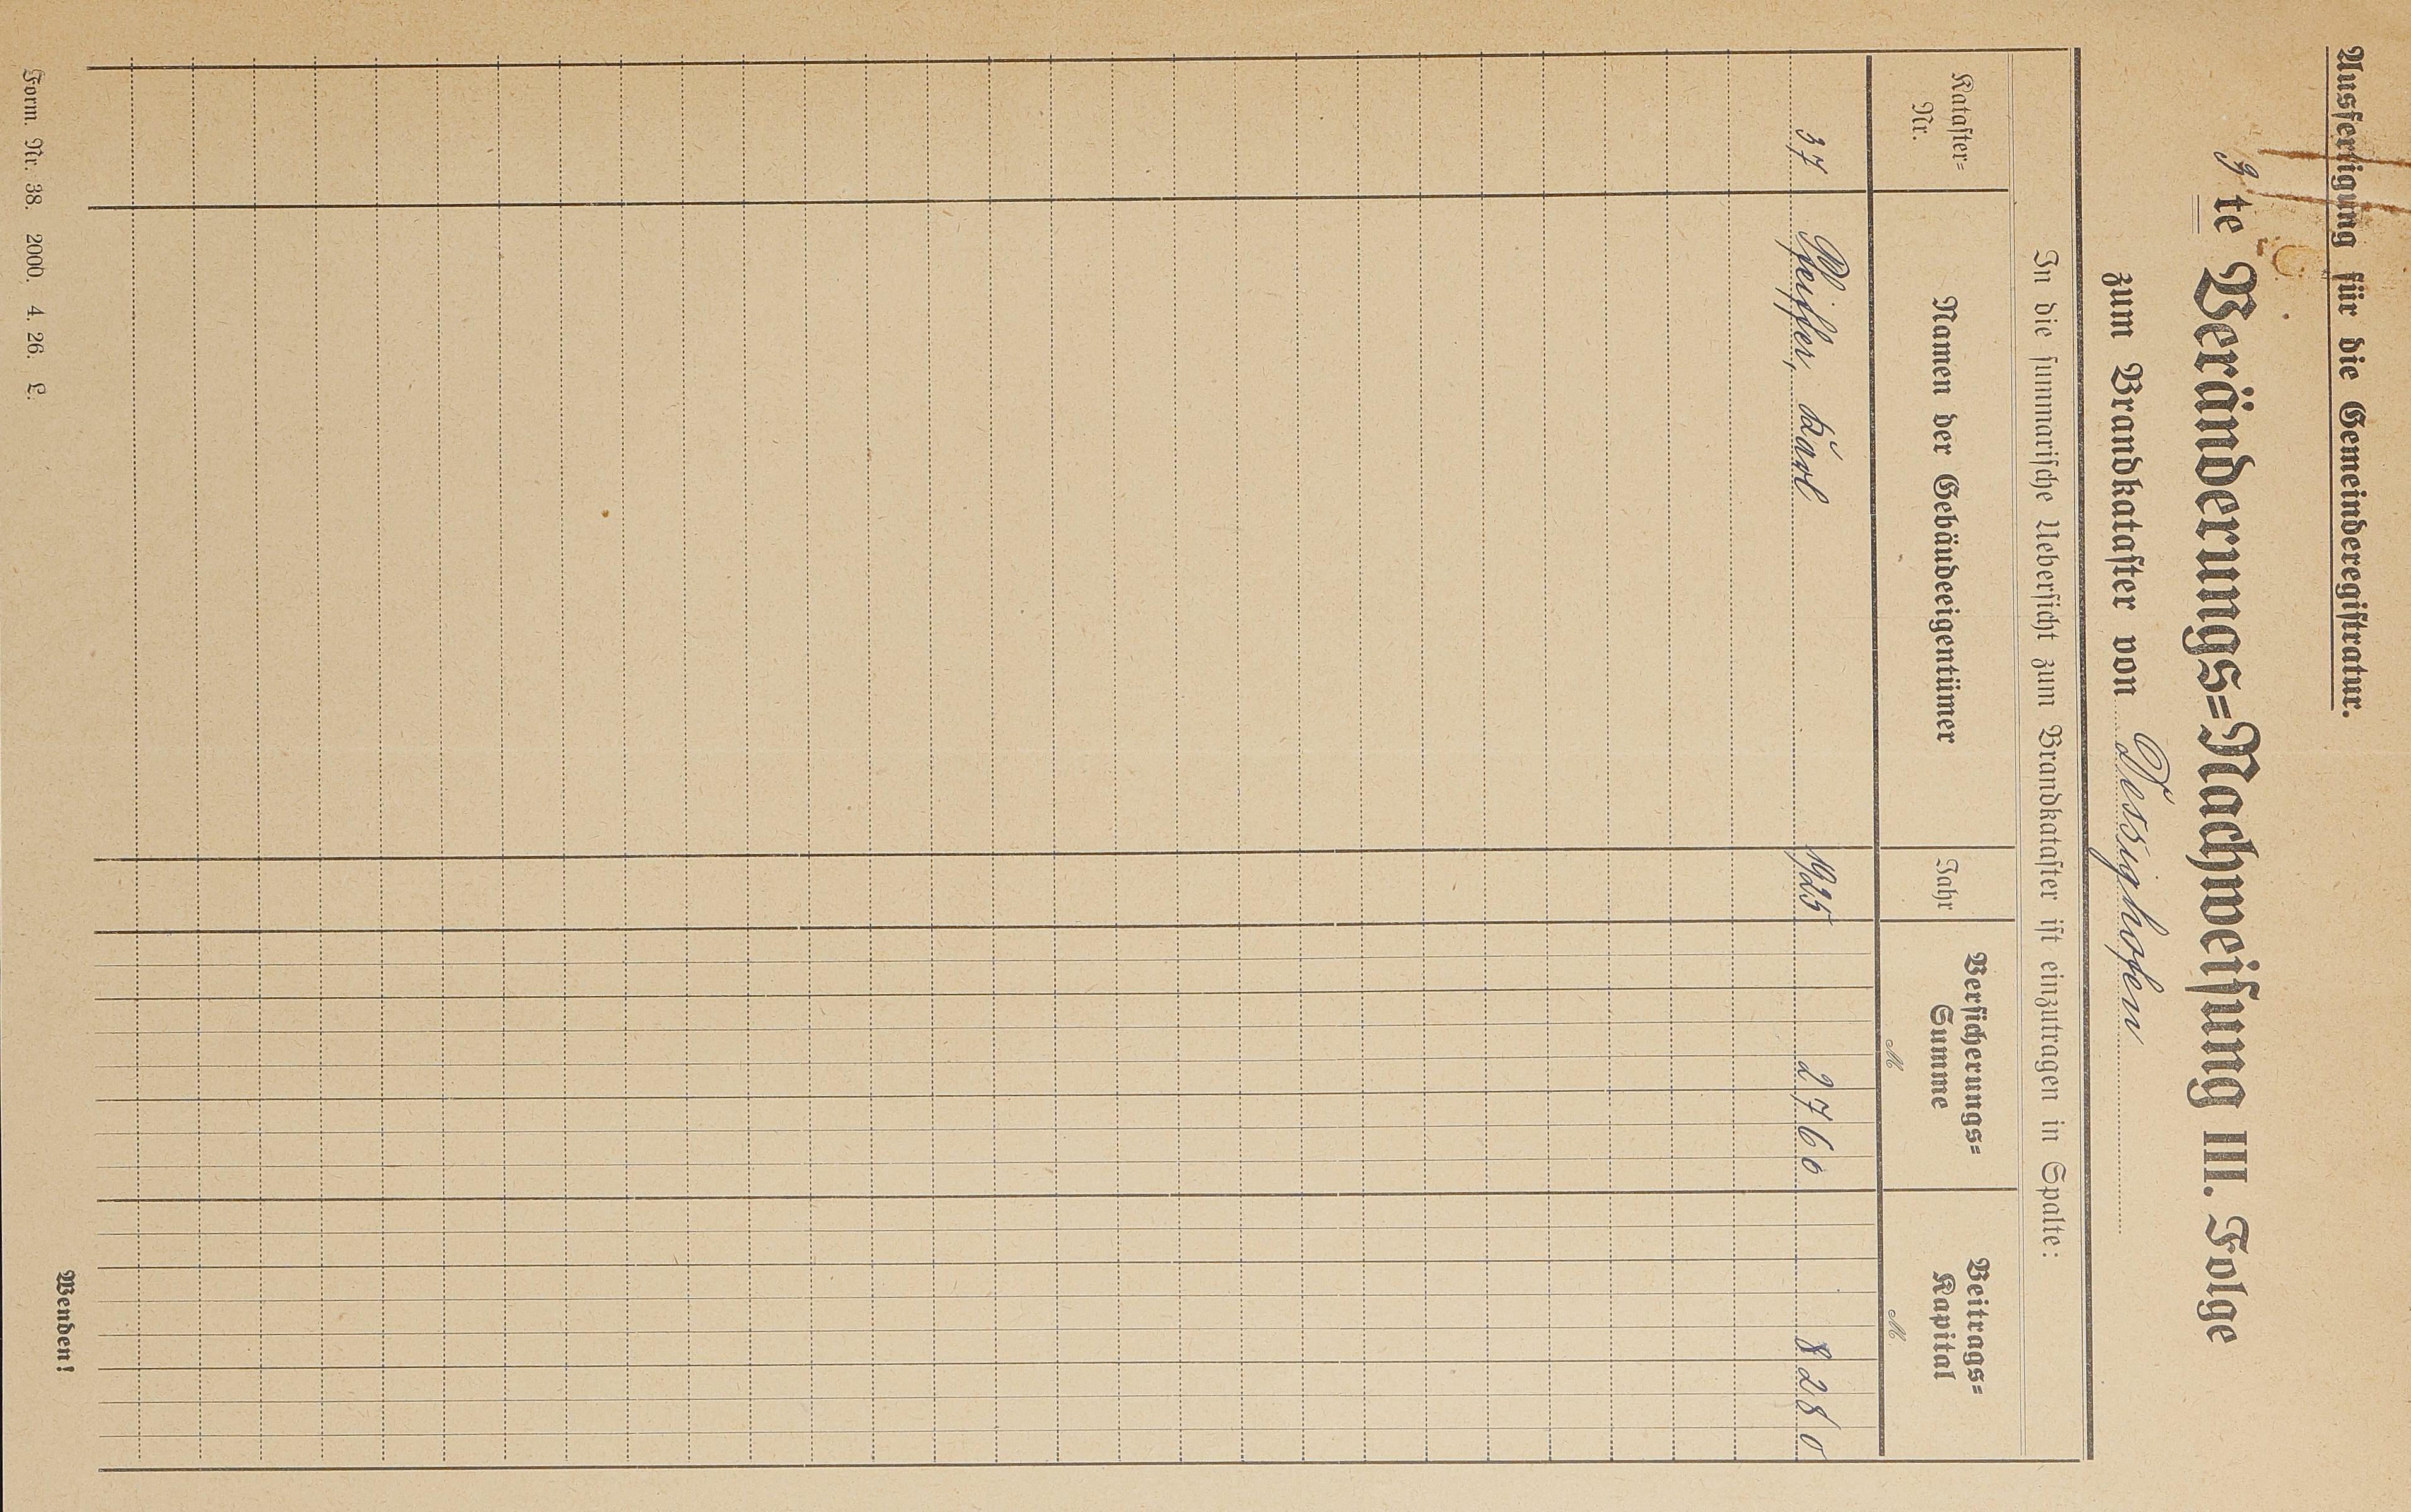 Ausfertigung für die Gemeinderegistratur.
3 te Veränderungs=Nachweisung III. Folge
zum Brandkataster von Dessighofen
In die summarische Uebersicht zum Brandkataster ist einzutragen in Spalte:
Kataster=
Nr.
Namen der Gebäudeeigentümer
Jahr
Versicherungs=
Summe
M
Beitrags=
Kapital
M
37 Pfeiffer, Karl 1925 2760 8280
Wenden!
Form. Nr. 38. 2000. 4. 26. L.